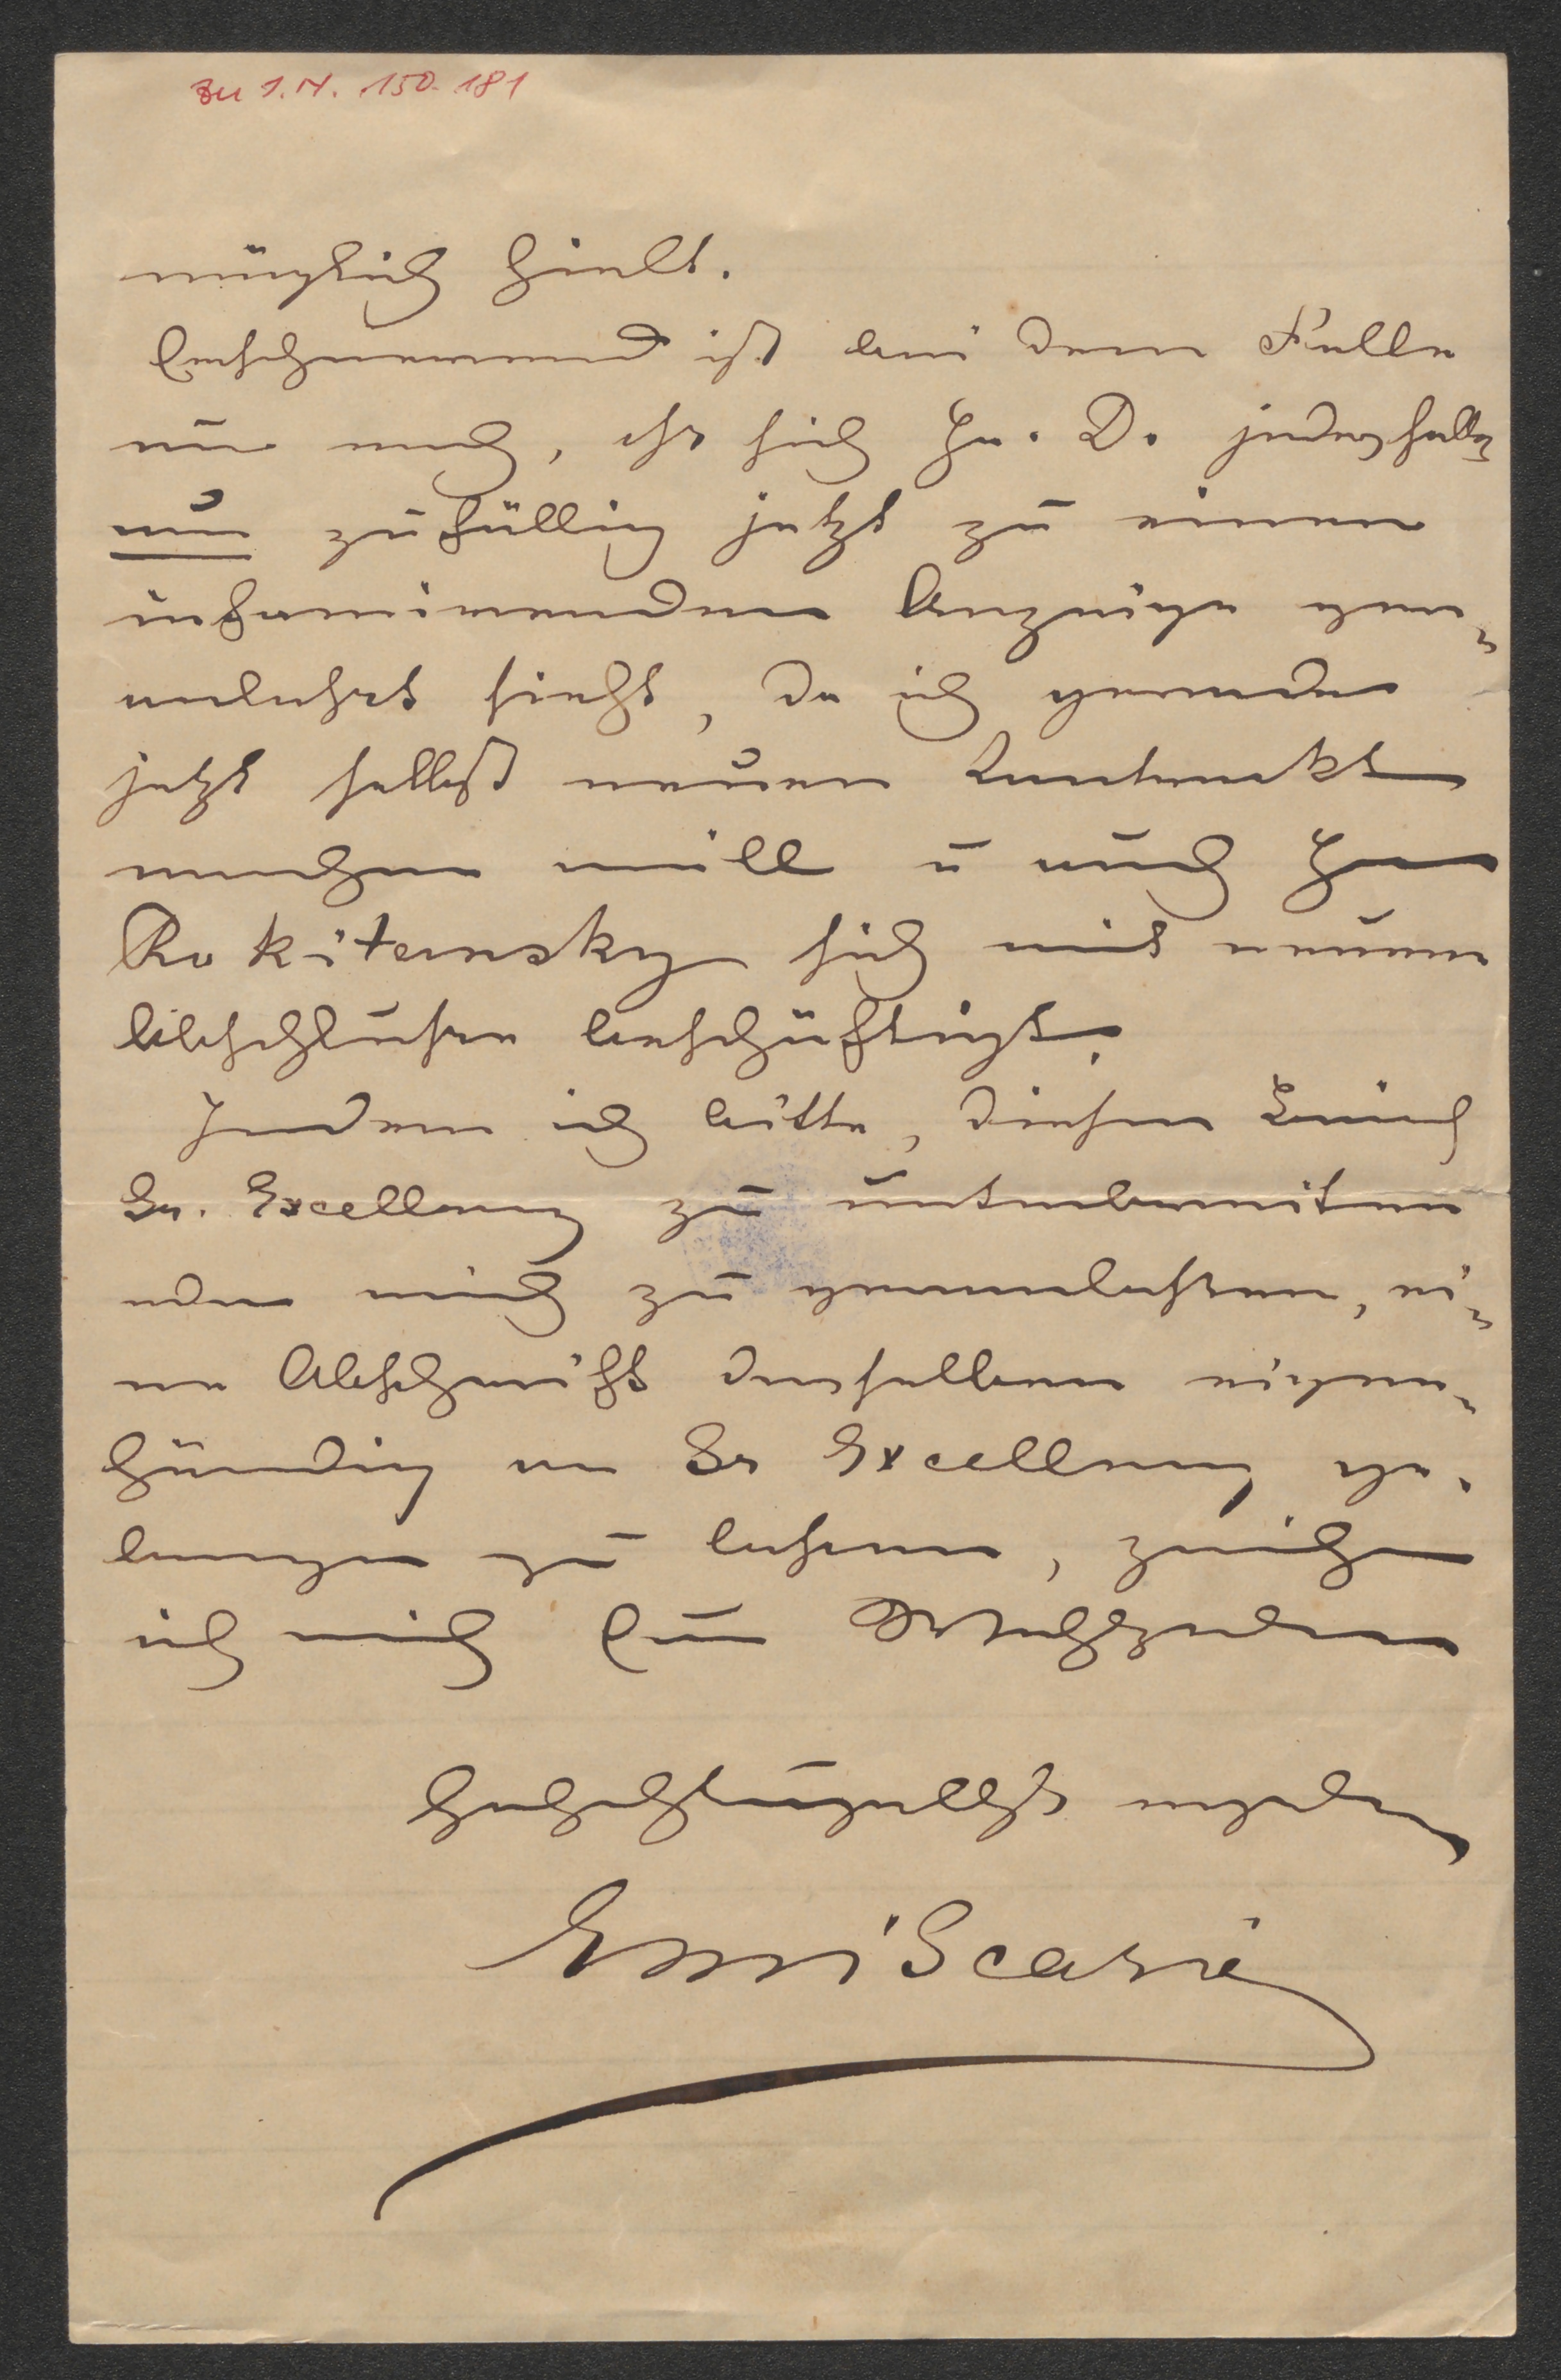 zu I.N. 150.181
möglich hielt.
Erschwerend ist bei dem Falle
nur noch, daß sich Hr. D. jedesfalls
nur zufällig jetzt zu einer
infamirenden Anzeige ver=
anlaßt sieht, da ich gerade
jetzt selbst neuen Contrakt
machen will u auch Herr
Rokitansky sich mit neuem
Abschluße beschäftigt.
Indem ich bitte, diesen Brief
Sr. Excellenz zu unterbreiten
oder mich zu veranlaßen, ei=
ne Abschrift desselben eigen=
händig an Sr Excellenz ge=
langen zu lassen, zeichne
ich mich Euer Wohlgeboren
hochachtungsvollst ergeben
Emil Scaria